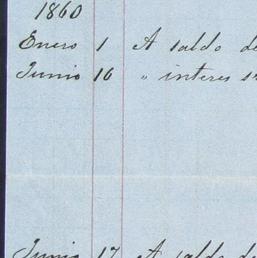 1860
Enero 1 A saldo de
Junio 16 " interes
Junio 17 A saldo de